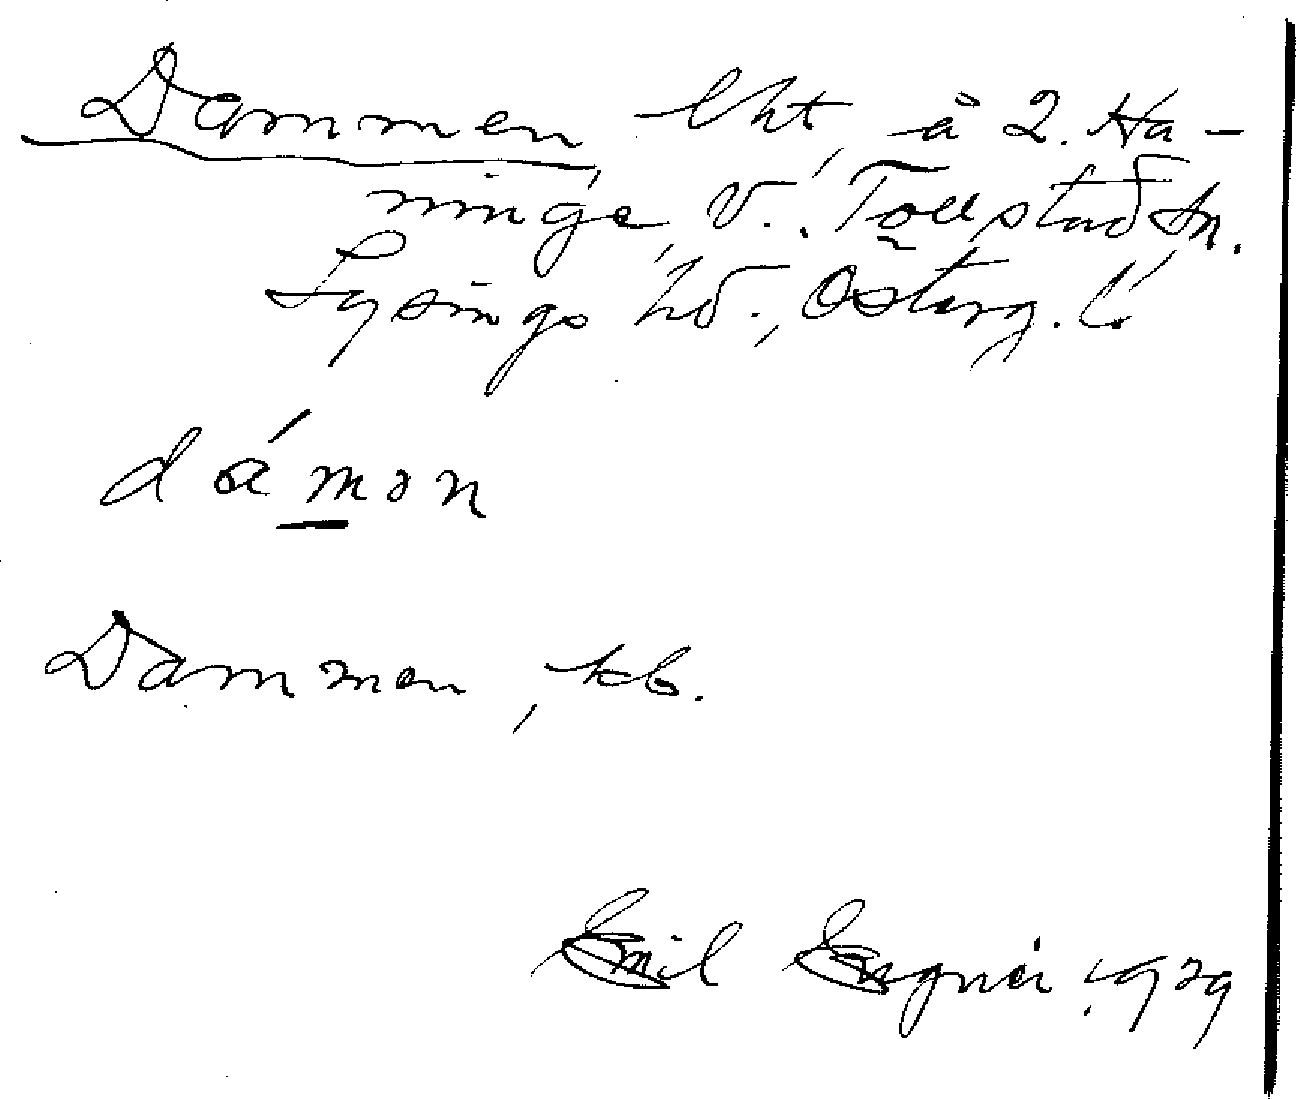 Dammen lht, å 2. Ha-
ninge, V. Tollstad sn.
Lysings hd., Österg. l.
dámən
Dammen, kb.
Emil 1929